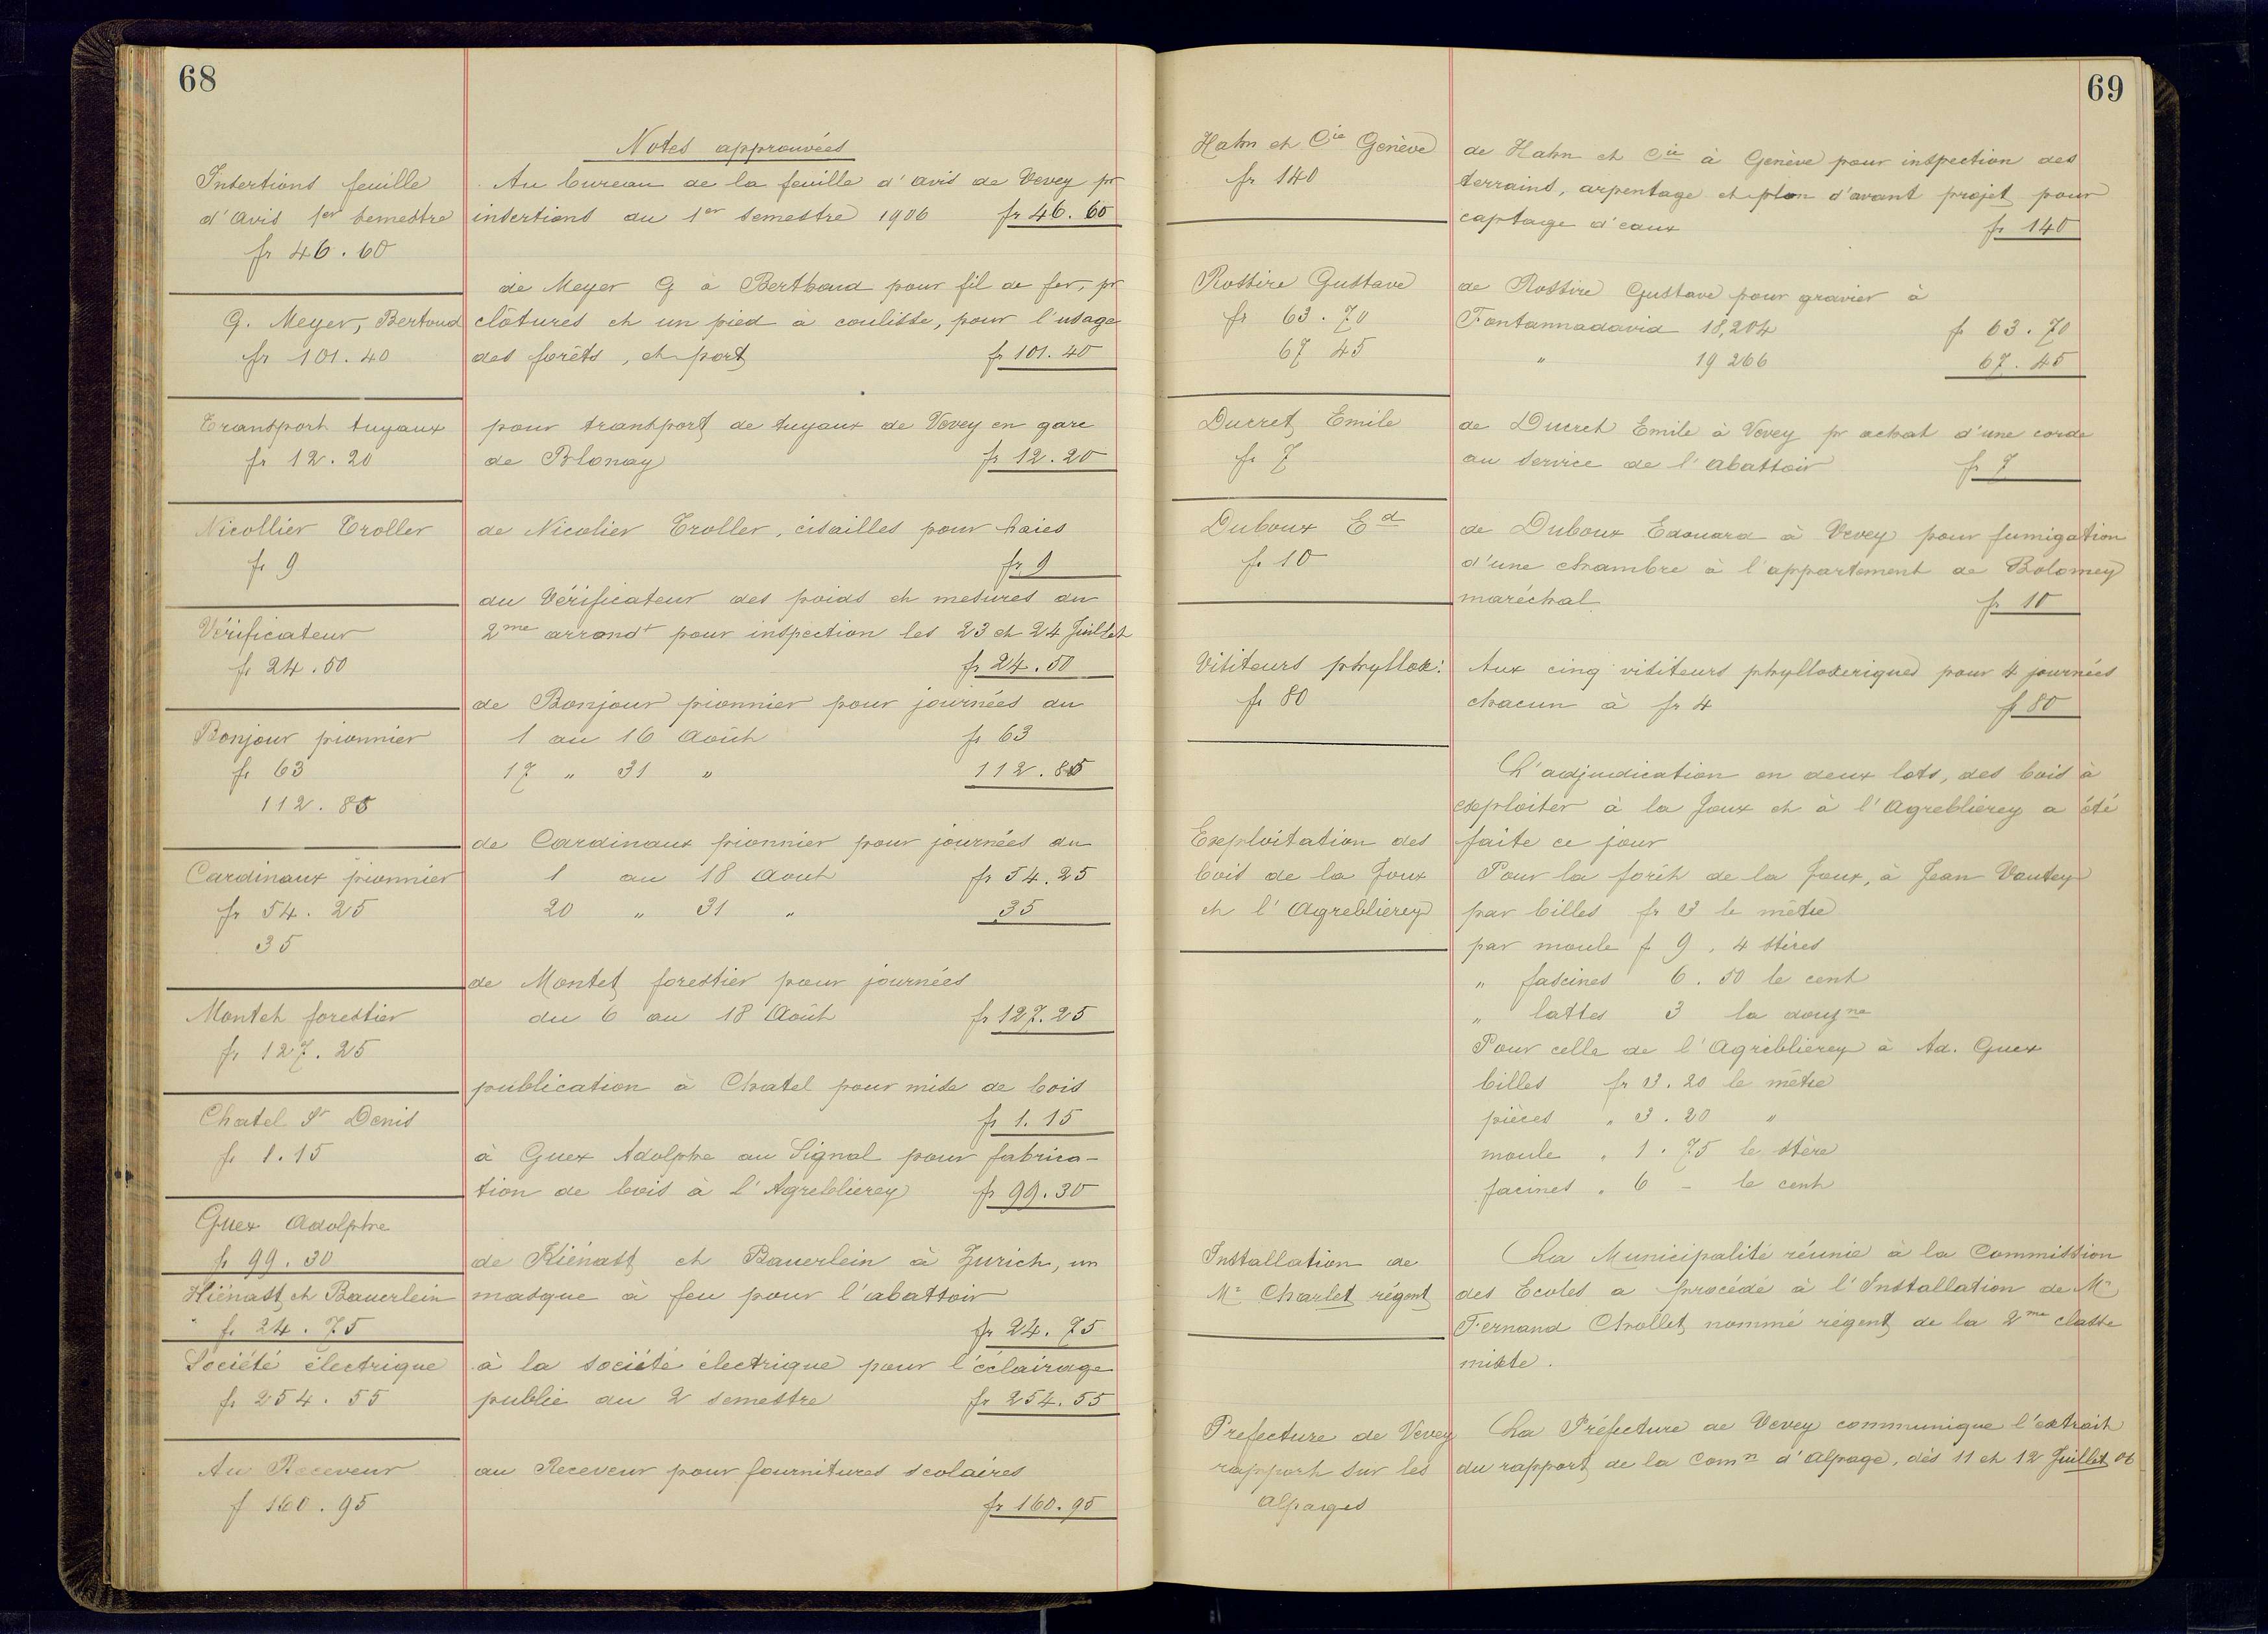 68
Notes approuvées
Insertions feuille
d'avis 1er semestre
fr 46.60
Au bureau de la feuille d'avis de Vevey pr
insertions du 1er semestre 1906 fr 46.60
G. Meyer, Bertoud
fr 101.40
de Meyer G à Berthoud pour fil de fer, pr
clôtures et un pied à coulisse, pour l'usage
des forêts, et port fr 101.40
Transport tuyaux
fr 12.20
pour transport de tuyaux de Vevey en gare
de Blonay fr 12.20
Nicollier Troller
fr 9
de Nicolier Troller, cisailles pour haies
fr 9
Vérificateur
fr 24.50
du Vérificateur des poids et mesures du
2me arrondt pour inspection les 23 et 24 Juillet
fr 24.50
Bonjour pionnier
fr 63
112.85
de Bonjour pionnier pour journées du
1 au 16 Août fr 63
17 " 31 " 112.85
Cardinaux pionnier
fr 54.25
35
de Cardinaux pionnier pour journées du
1 au 18 Aout fr 54.25
20 " 31 " 35
Montet forestier
fr 127.25
de Montet forestier pour journées
du 6 au 18 Août fr 127.25
Chatel St Denis
fr 1.15
publication à Chatel pour mise de bois
fr 1.15
Guex Adolphe
fr 99.30
à Guex Adolphe au Signal pour fabrica-
tion de bois à l'Agreblierey fr 99.30
Kiénast et Bauerlein
fr 24.75
de Kiénast et Bauerlein à Zurich, un
masque à feu pour l'abattoir
fr 24.75
Société électrique
fr 254.55
à la société électrique pour l'éclairage
public du 2 semestre fr 254.55
Au Receveur
f 160.95
au Receveur pour fournitures scolaires
fr 160.95
69
Hahn et Cie Genève
fr 140
de Hahn et Cie à Genève pour inspection des
terrains, arpentage et plan d'avant projet pour
captage d'eaux fr 140
Rossire Gustave
fr 63.70
67 45
de Rossire Gustave pour gravier à
Fontannadavid 18,204 f 63.70
" 19 266 67.45
Ducret Emile
fr 7
de Ducret Emile à Vevey pr achat d'une corde
au service de l'abattoir fr 7
Duboux Ed
fr 10
de Duboux Edouard à Vevey pour fumigation
d'une chambre à l'appartement de Bolomey
maréchal fr 10
Visiteurs phyllox:
fr 80
Aux cinq visiteurs phylloxeriques pour 4 journées
chacun à fr 4 f 80
Exploitation des
bois de la Joux
et l'Agreblierey
L'adjudication en deux lots, des bois à
exploiter à la Joux et à l'Agreblierey a été
faite ce jour
Pour la forêt de la Joux, à Jean Vautey
par billes fr 3 le mètre
par moule f 9, 4 stères
" fascines 6.50 le cent
" lattes 3 la douzne
Pour celle de l'Agreblierey à Ad. Guex
billes fr 3.20 le mètre
pièces " 3.20 "
moule " 1.75 le stère
facines " 6 - le cent
Installation de
Mr Charlet régent
La Municipalité réunie à la Commission
des Ecoles a procédé à l'Installation de Mr
Fernand Chollet nommé régent de la 2me classe
mixte.
Prefecture de Vevey
rapport sur les
Alpages
La Préfecture de Vevey communique l'extrait
du rapport de la Comn d'Alpage, dès 11 et 12 Juillet 06